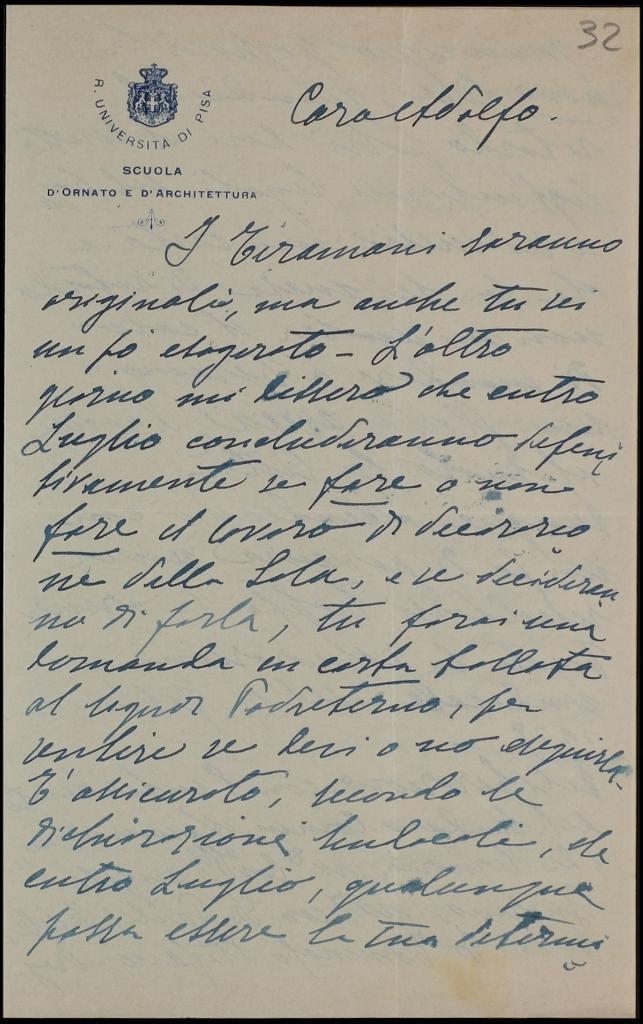 32
R. UNIVERSITÀ DI PISA
SCUOLA
D'ORNATO E D'ARCHITETTURA
Caro Adolfo.
I Tiramani saranno
originali, ma anche tu sei
un pò esagerato - L'altro
giorno mi dissero che entro
Luglio concluderanno defini
tivamente se fare o non
fare il lavoro di decorazio
ne della Sala, e se decideran
no di farla, tu farai una
domanda in carta bollata
al Signor Padreterno, per
sentire se devi o no eseguirla.
È assicurato, secondo le
dichiarazioni, che
entro Luglio, qualunque
possa essere la tua determi